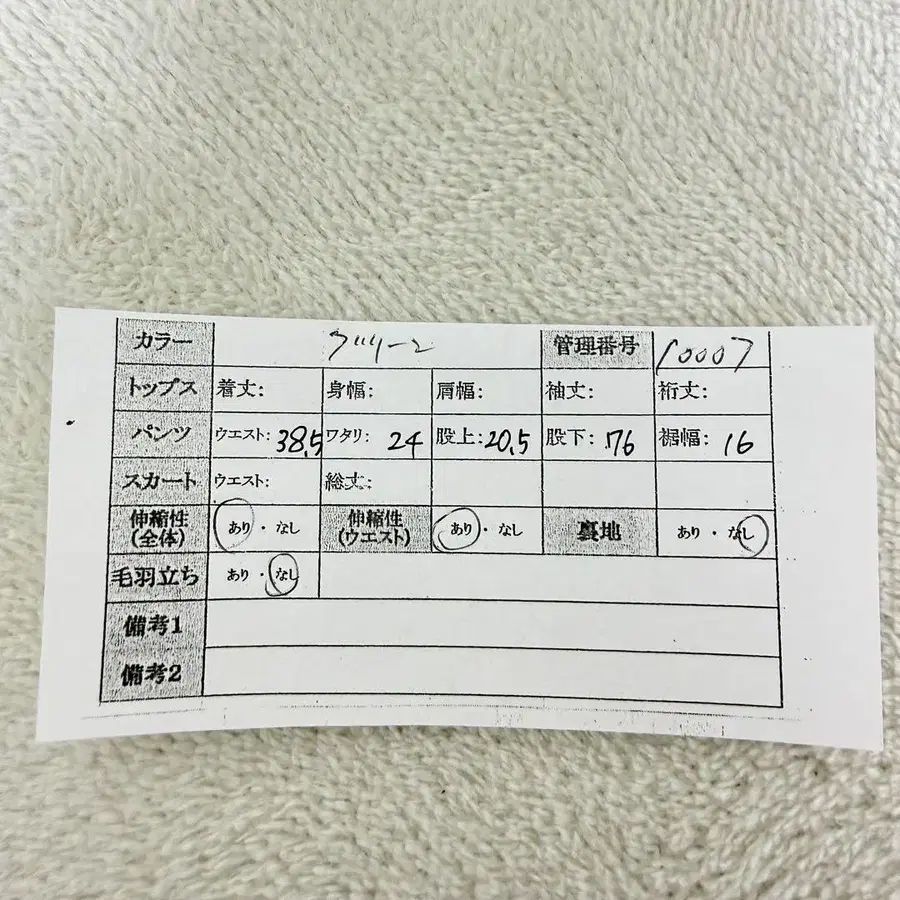 カラー グリーン 管理番号 10007
トップス 着丈: 身幅: 肩幅: 袖丈: 裄丈:
パンツ ウエスト: 38.5 ワタリ: 24 股上: 20.5 股下: 76 裾幅: 16
スカート ウエスト: 総丈:
伸縮性(全体) あり・なし 伸縮性(ウエスト) あり・なし 裏地 あり・なし
毛羽立ち あり・なし
備考1
備考2